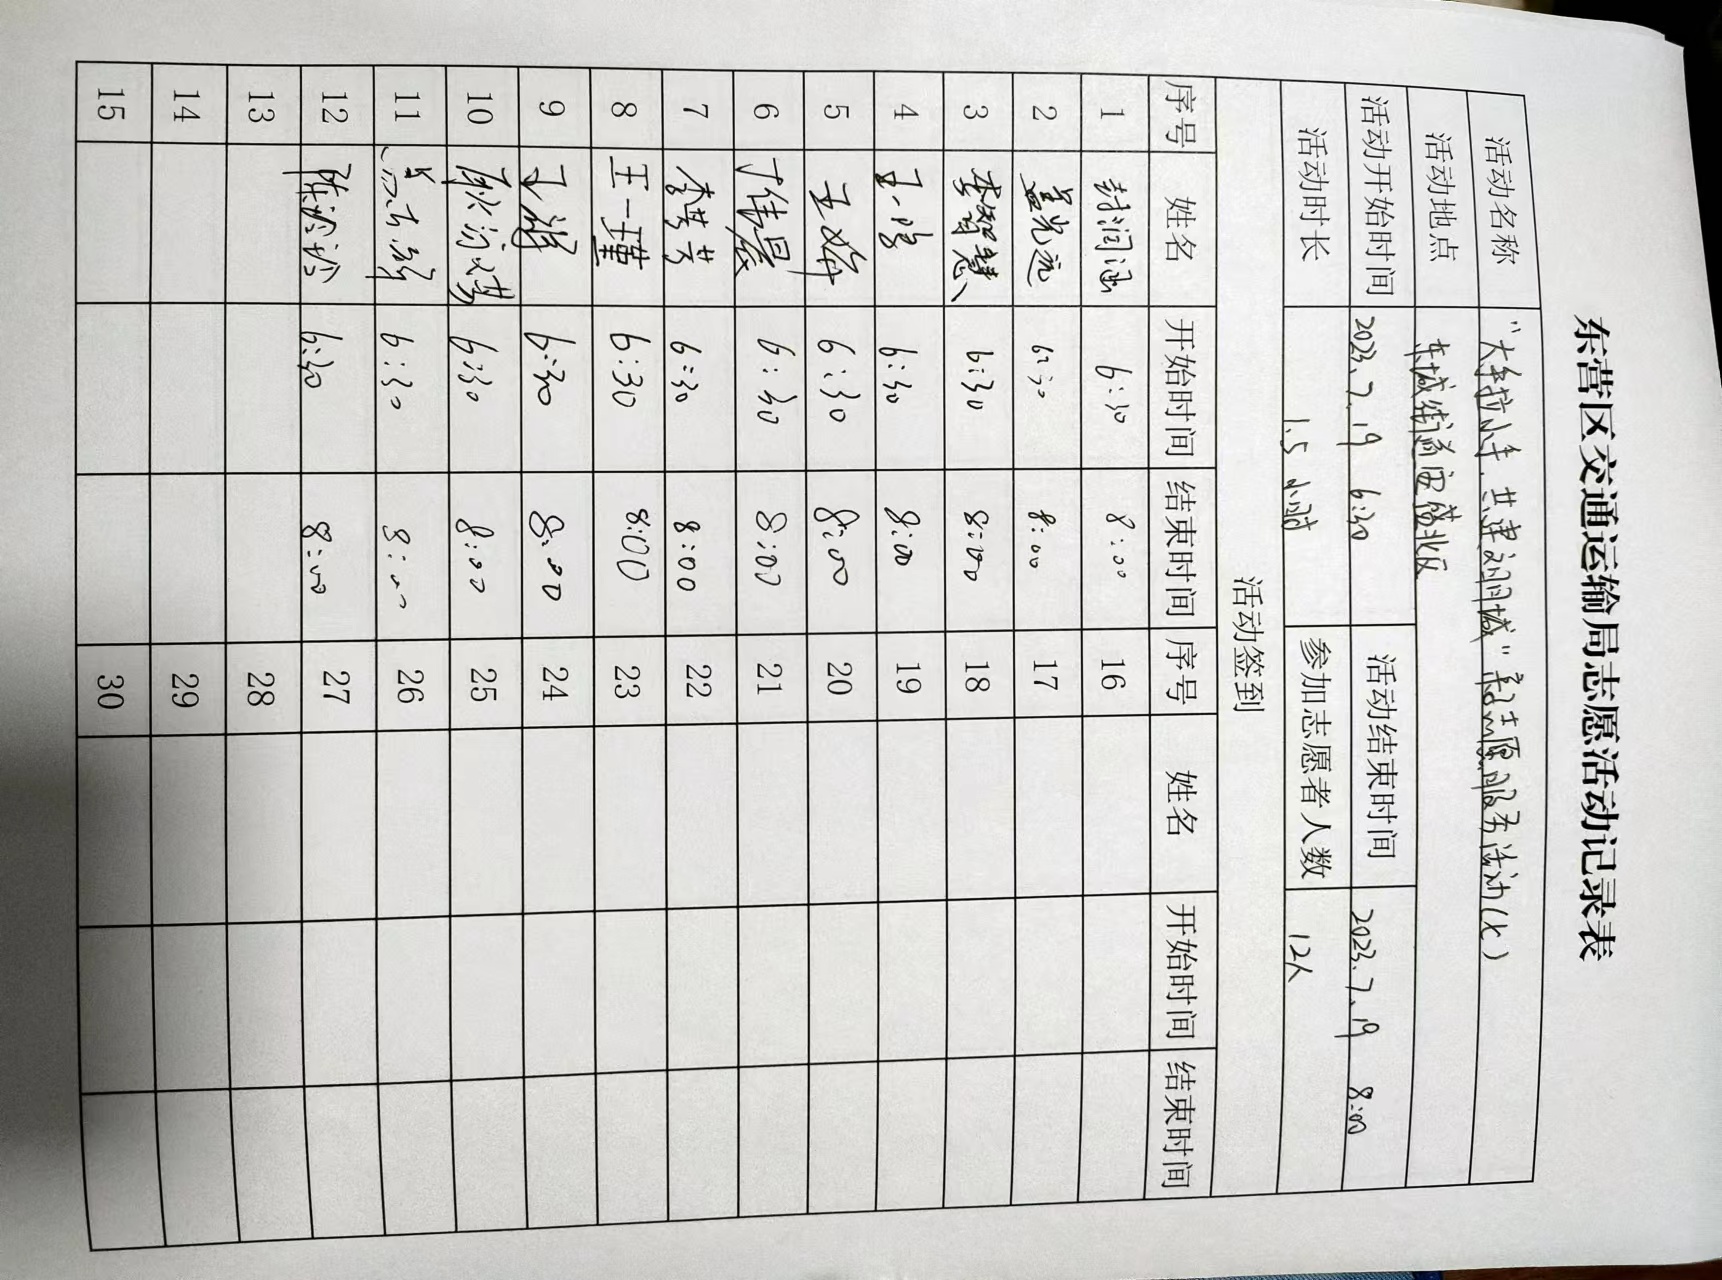 东营区交通运输局志愿活动记录表
活动名称 "大手拉小手,共建文明城"亲子志愿服务活动(七)
活动地点 东城街道
活动开始时间 2023.7.19 6:30 活动结束时间 2023.7.19 8:00
活动时长 1.5小时 参加志愿者人数 12人
活动签到
序号 姓名 开始时间 结束时间 序号 姓名 开始时间 结束时间
1 封润涵 6:30 8:00 16
2 盖光远 6:30 8:00 17
3 李智慧 6:30 8:00 18
4 王一鸣 6:30 8:00 19
5 王婷 6:30 8:00 20
6 丁伟晨 6:30 8:00 21
7 李芸芸 6:30 8:00 22
8 王一瑾 6:30 8:00 23
9 6:30 8:00 24
10 6:30 8:00 25
11 6:30 8:00 26
12 陈玲玲 6:30 8:00 27
13 28
14 29
15 30